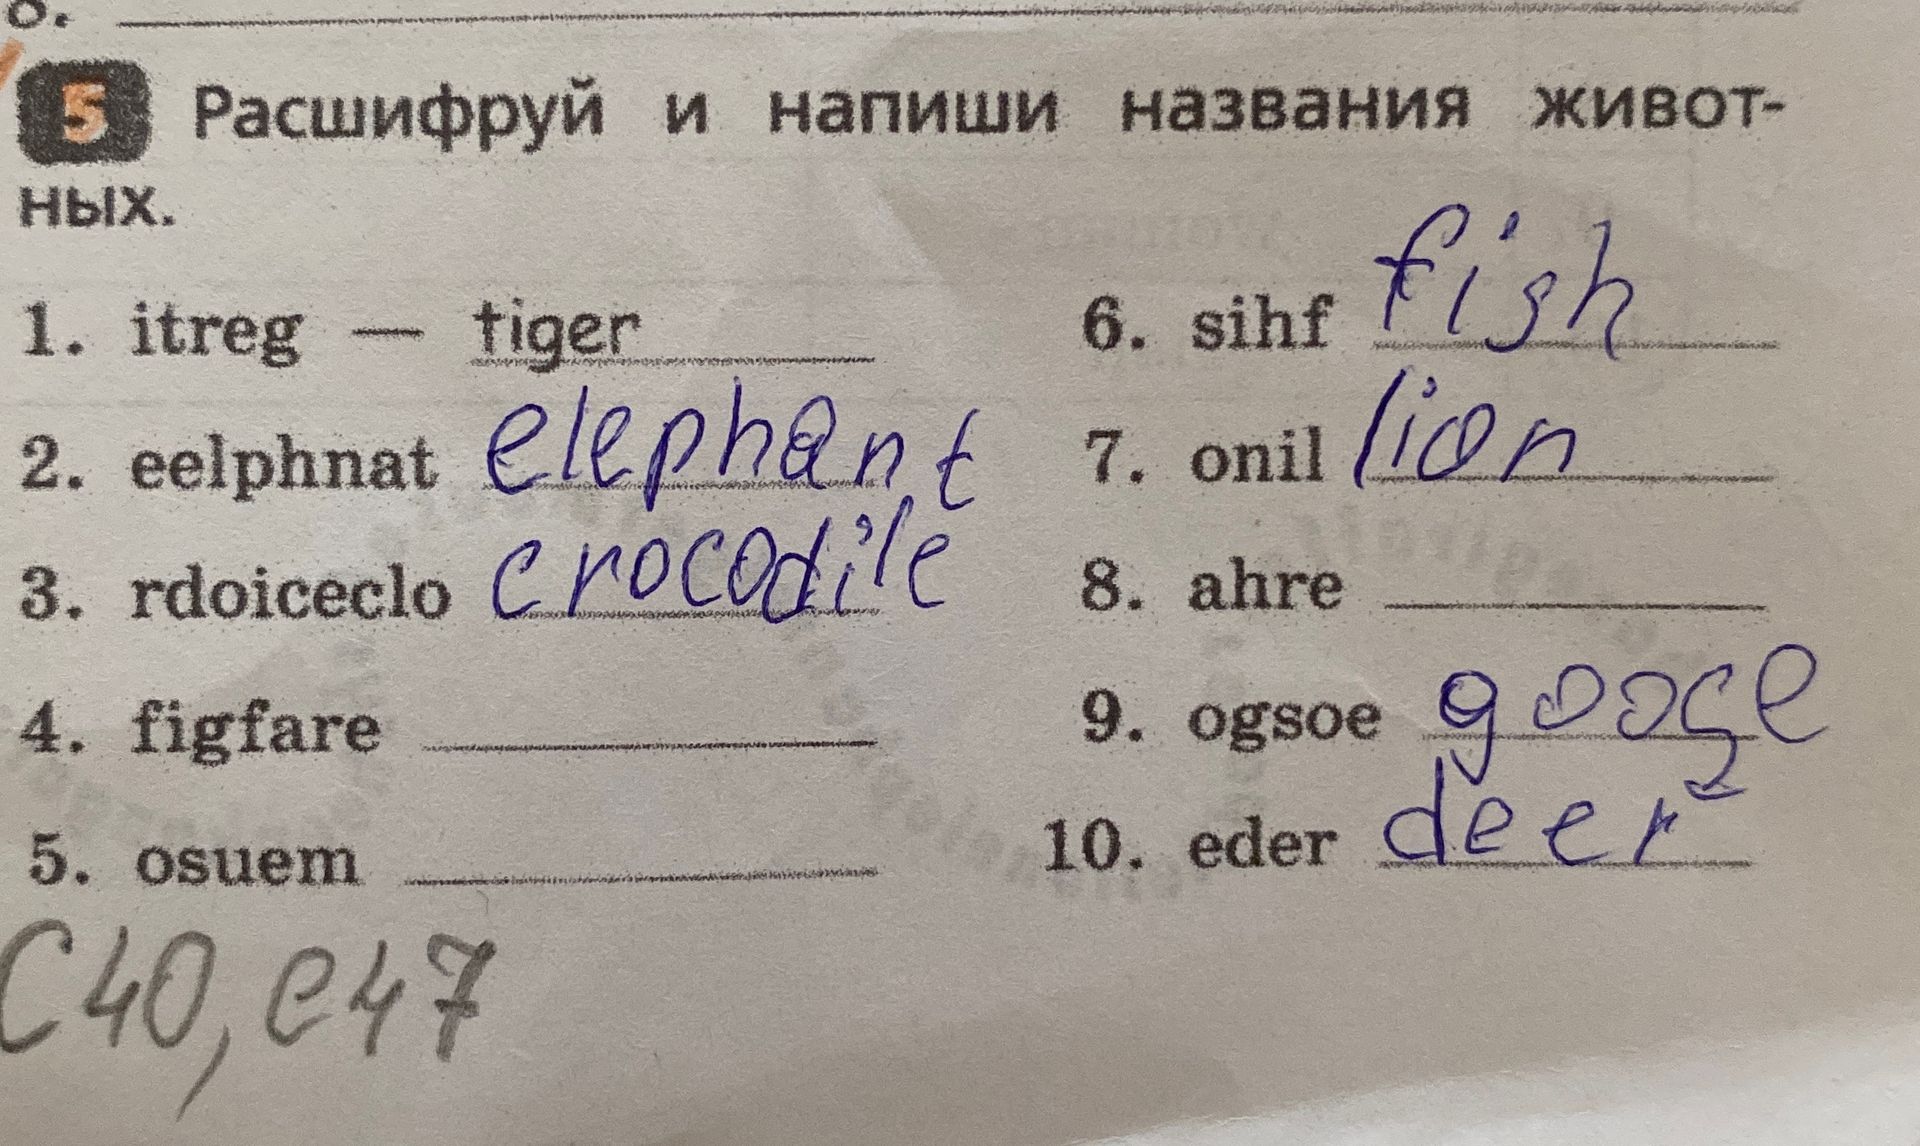 8.
5 Расшифруй и напиши названия живот-
ных.
1. itreg — tiger
2. eelphnat elephant
3. rdoiceclo crocodile
4. figfare
5. osuem
6. sihf fish
7. onil lion
8. ahre
9. ogsoe goose
10. eder deer
С40, с47